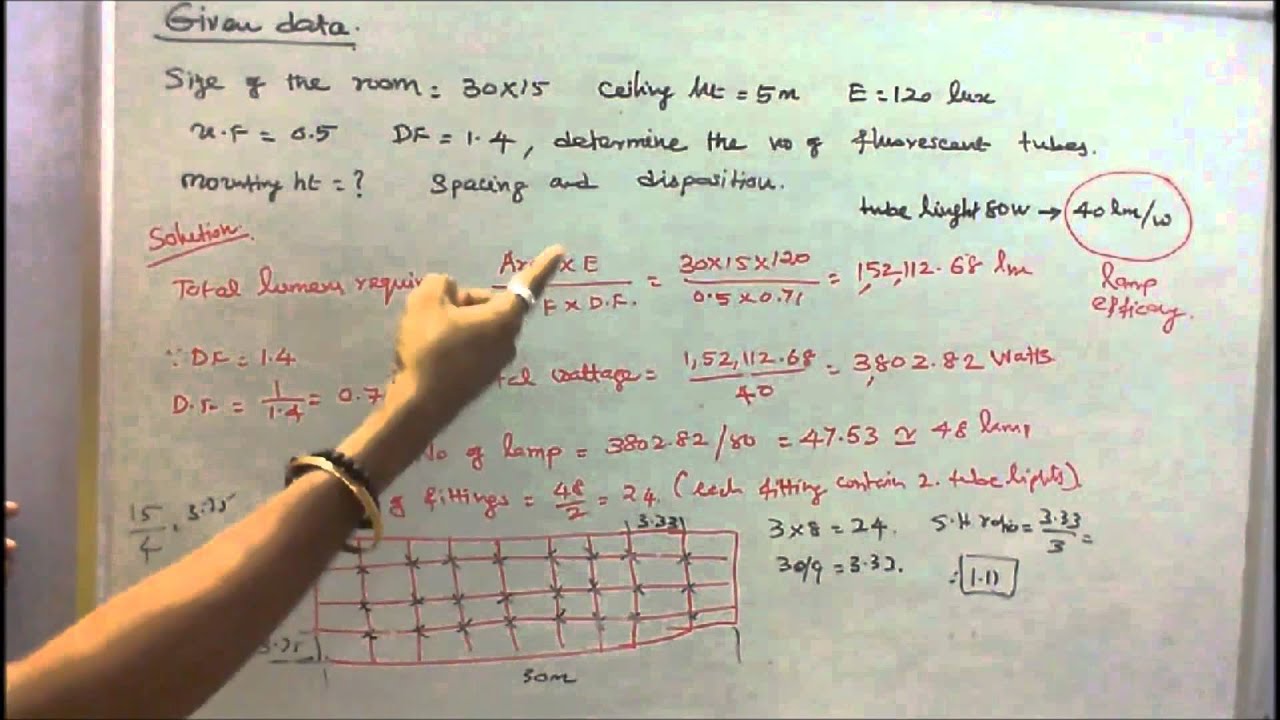 Given data.
Size of the room = 30x15 Ceiling ht = 5m E = 120 lux
U.F = 0.5 DF = 1.4, determine the no of fluorescent tubes.
mounting ht = ? Spacing and disposition.
tube linght 80w → 40 lm/w
Solution:
lamp efficacy.
Total lumens requir Ar x E / F x D.F. = 30x15x120 / 0.5 x 0.71 = 1,52,112.68 lm
∵ DF = 1.4
D.F = 1/1.4 = 0.7
tal wattage = 1,52,112.68 / 40 = 3,802.82 Watts
No of lamp = 3802.82/80 = 47.53 ≃ 48 lamp
of fittings = 48/2 = 24. (each fitting contain 2. tube lights)
15/4 = 3.75
3.33
3x8 = 24. S.H ratio = 3.33/3 =
30/9 = 3.33. 1.11
3.75
30m